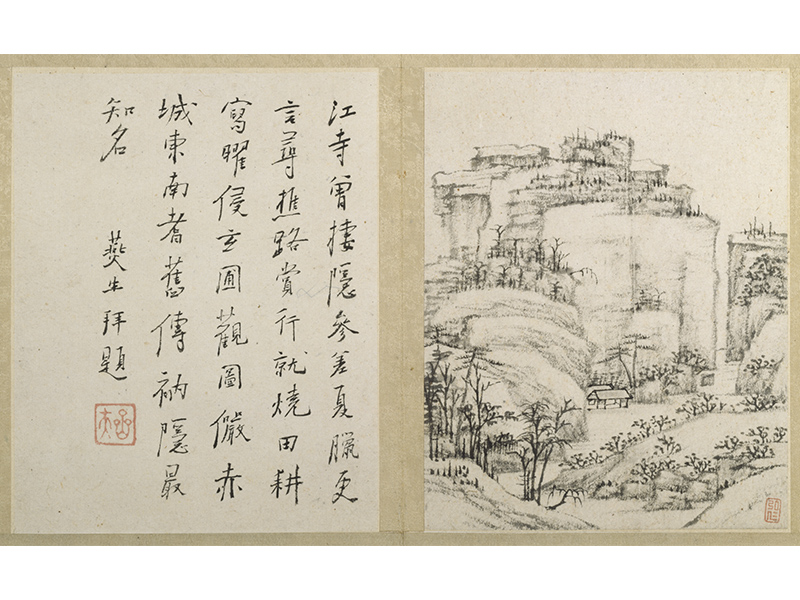 江寺曾棲隱參差夏臘更
言尋樵路賞行就燒田耕
寫曜侵玄圃觀圖儼赤
城東南耆舊傳衲隱最
知名 燕生拜題